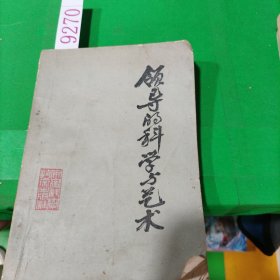 9270
领导的科学与艺术